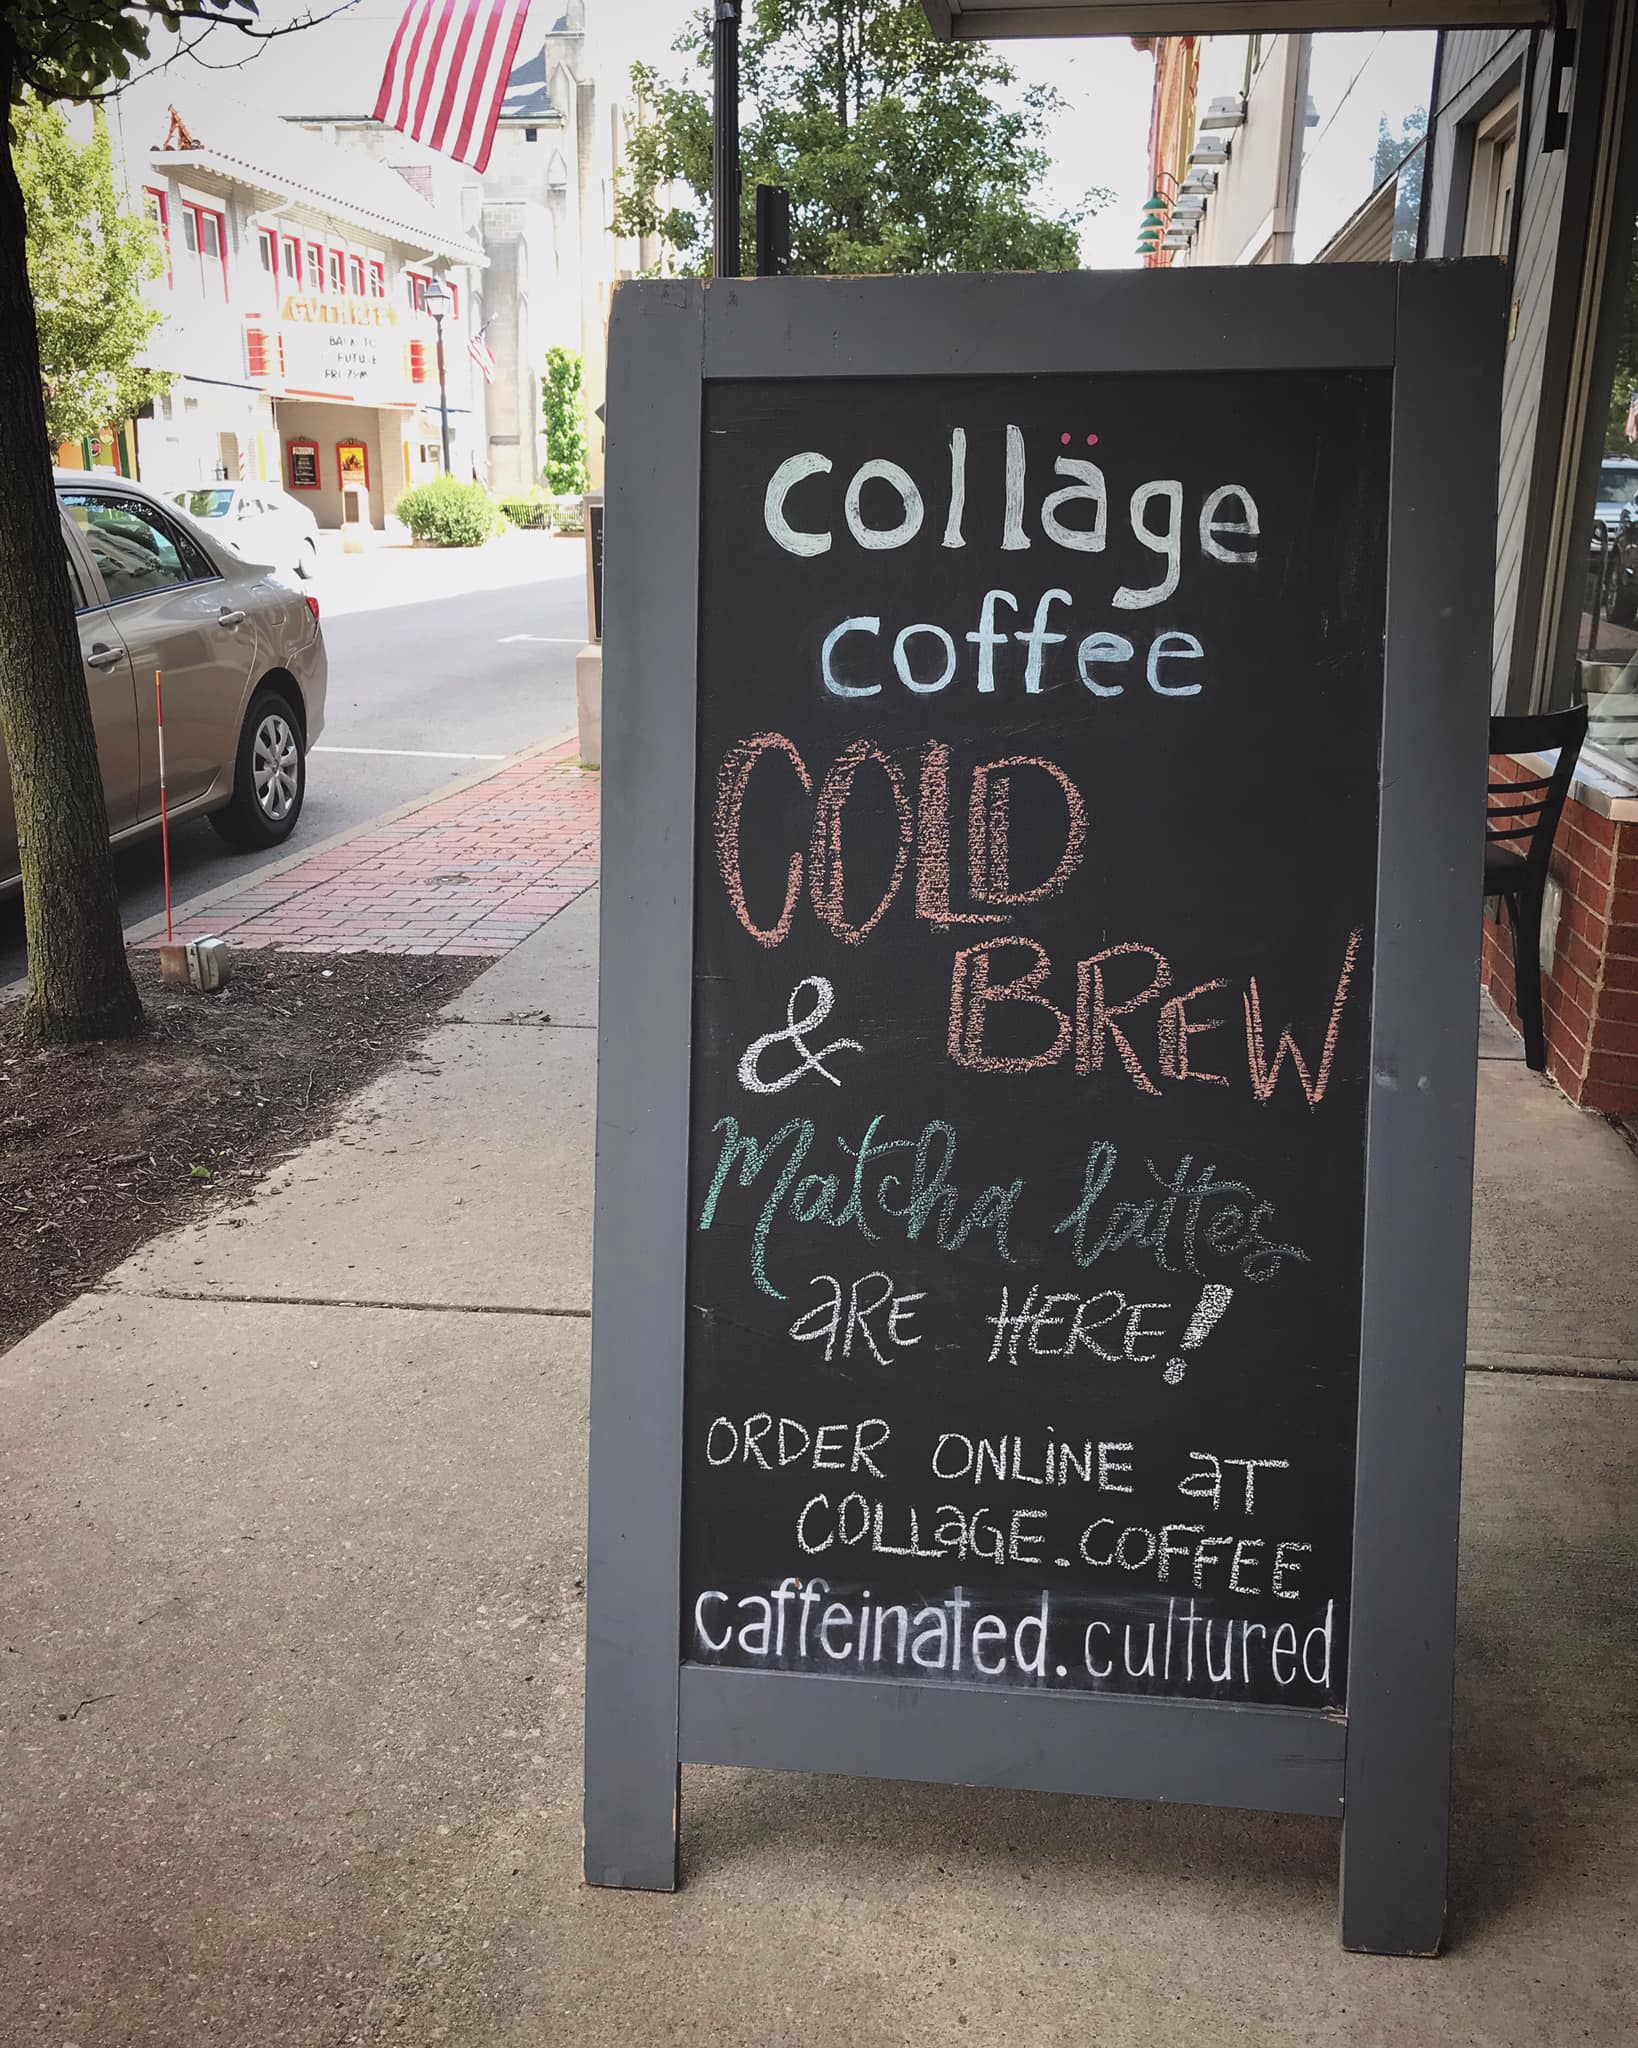 GUTHRIE
BACK TO
FUTURE
FRI 7PM
colläge
coffee
COLD
& BREW
Matcha lattes
aRE HERE!
ORDER ONLiNE aT
COLLaGE.COFFEE
caffeinated. cultured